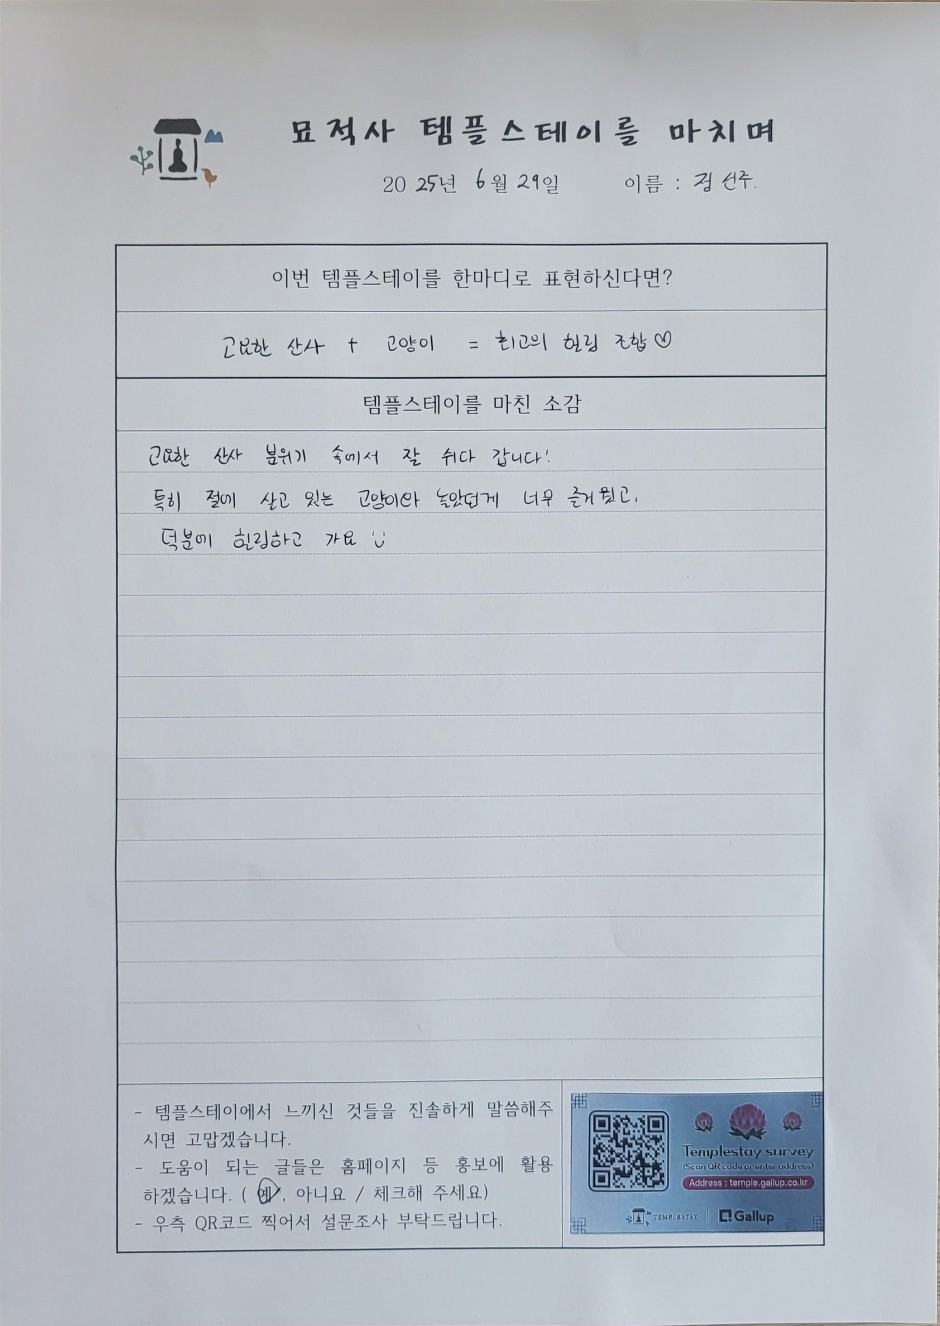 묘적사 템플스테이를 마치며
2025년 6월 29일 이름 : 정선주.
이번 템플스테이를 한마디로 표현하신다면?
고요한 산사 + 고양이 = 최고의 힐링 조합♡
템플스테이를 마친 소감
고요한 산사 분위기 속에서 잘 쉬다 갑니다!
특히 절에 살고 있는 고양이와 놀았던게 너무 즐거웠고,
덕분에 힐링하고 가요 ☺
- 템플스테이에서 느끼신 것들을 진솔하게 말씀해주
시면 고맙겠습니다.
- 도움이 되는 글들은 홈페이지 등 홍보에 활용
하겠습니다. ( 예, 아니요 / 체크해 주세요)
- 우측 QR코드 찍어서 설문조사 부탁드립니다.
Templestay survey
(Scan QR code or enter address)
Address : temple.gallup.co.kr
TEMPLESTAY Gallup